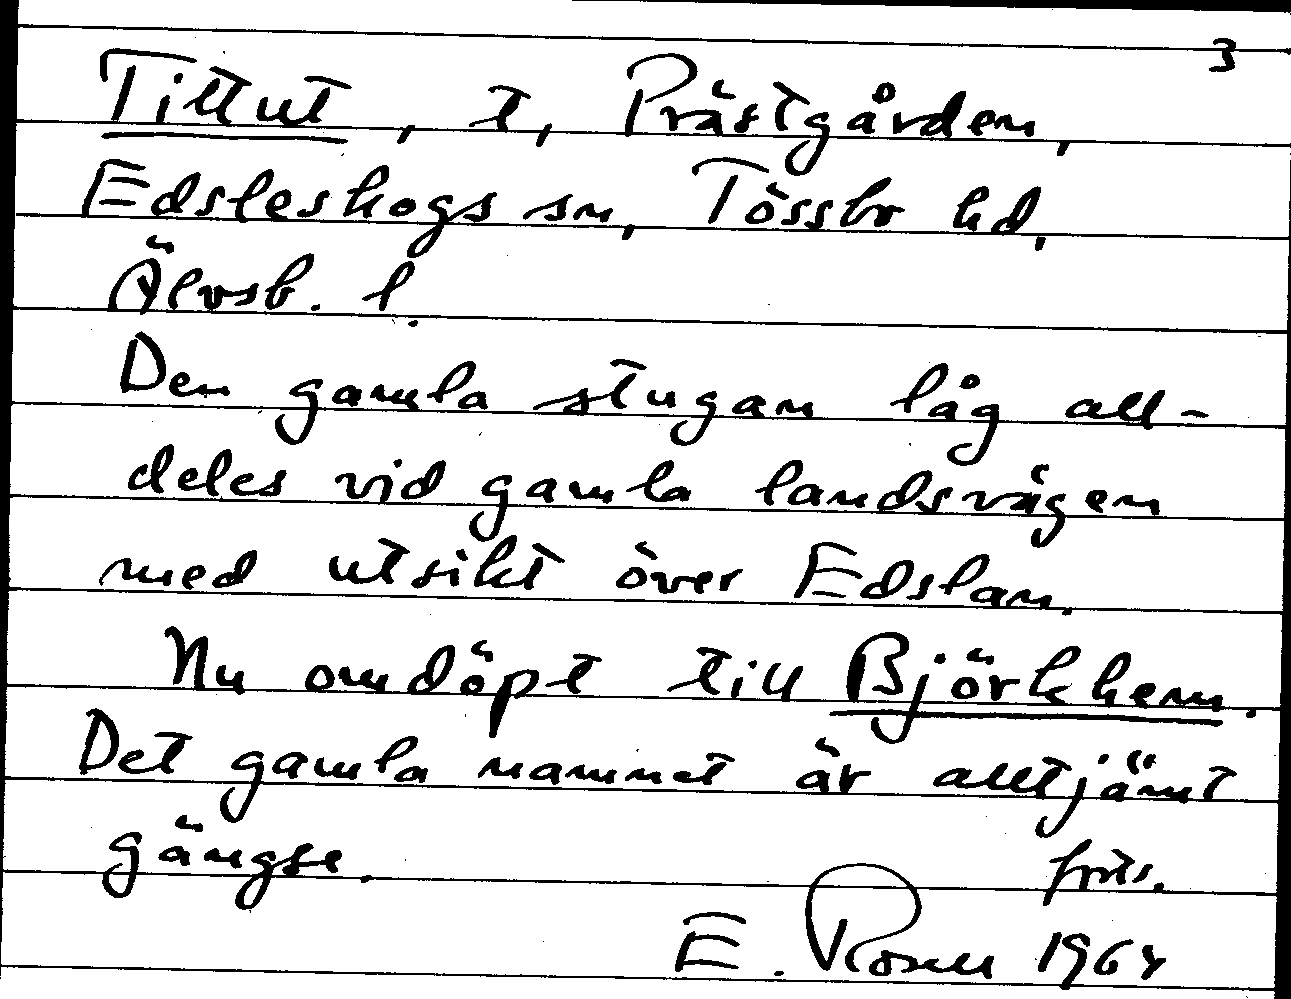 3
Tittut, t, Prästgården,
Edsleskogs sn, Tössbo hd,
Älvsb. l.
Den gamla stugan låg all-
deles vid gamla landsvägen
med utsikt över Edslan.
Nu omdöpt till Björkhem.
Det gamla namnet är alltjämt
gängse.
forts.
E. Rosell 1964